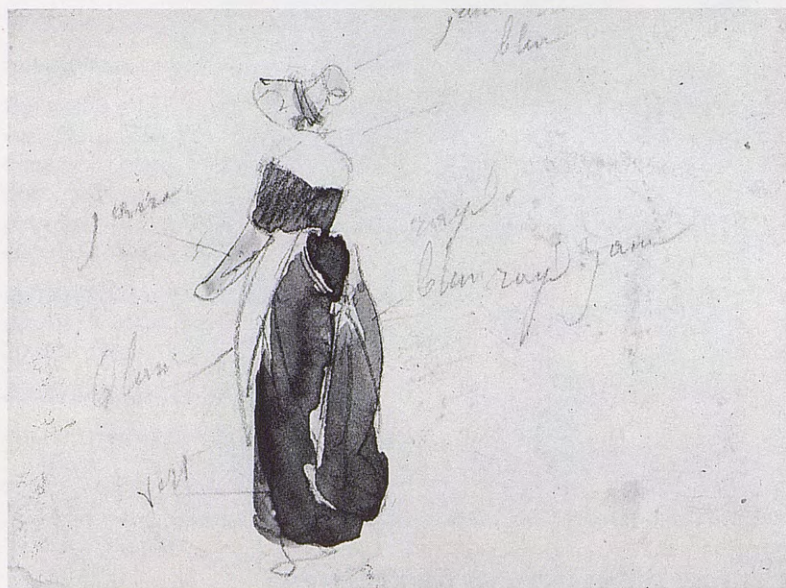 jaun
bleu
jaune
rayé.
bleu rayé jaun
bleu
vert